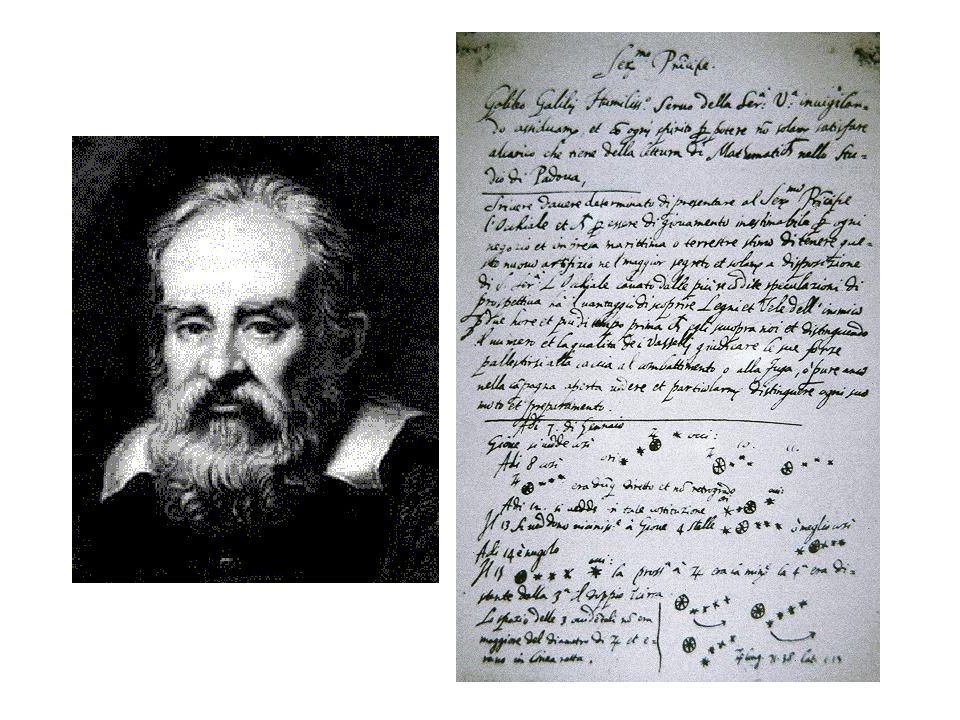 Ser.mo Principe.
Galileo Galilej Humiliss.o Seruo della Ser.a V.a inuigilan-
do assiduam.te, et cõ ogni spirito p potere nõ solam satisfare
alcarico che tiene della lettura di Mathematich nello Stu-
dio di Padoua,
Scriuere dauere determinato di presentare al Ser.mo Principe
l'Occhiale et p essere di giouamento inestimabile p ogni
negozio et impresa marittima o terrestre stimo di tenere que-
sto nuouo artifizio nel maggior segreto et solam a disposizione
di S. Ser.a L'Occhiale cauato dalle più recõdite speculazioni di
prospettiua ha il uantaggio di scoprire Legni et Vele dell'inimico
p due hore et più di tempo prima ch egli scuopra noi et distinguendo
il numero et la qualità dei Vasselli giudicare le sue forze
pallestirsi alla caccia al combattimento o alla fuga, o pure anco
nella cãpagna aperta uedere et particolarm distinguere ogni suo
moto et preparamento.
Adi 7. di Gennaio
Gioue si uede così ori: occi:
Adi 8 così 10. 11.
era dũq diretto et nõ retrogrado
Adi 12. si uedde in tale costituzione
Il 13 si ueddono uiciniss.e à Gioue 4 stelle ò meglio così
Adi 14 è nugolo
Il 15 la pross.a à era la min.e la 4.a era di-
stante dalla 3.a il doppio
Lo spazio delle 3 occidetali nõ era
maggiore del diametro di et e-
rano in linea retta.
long. 71.38 lat. 1.13